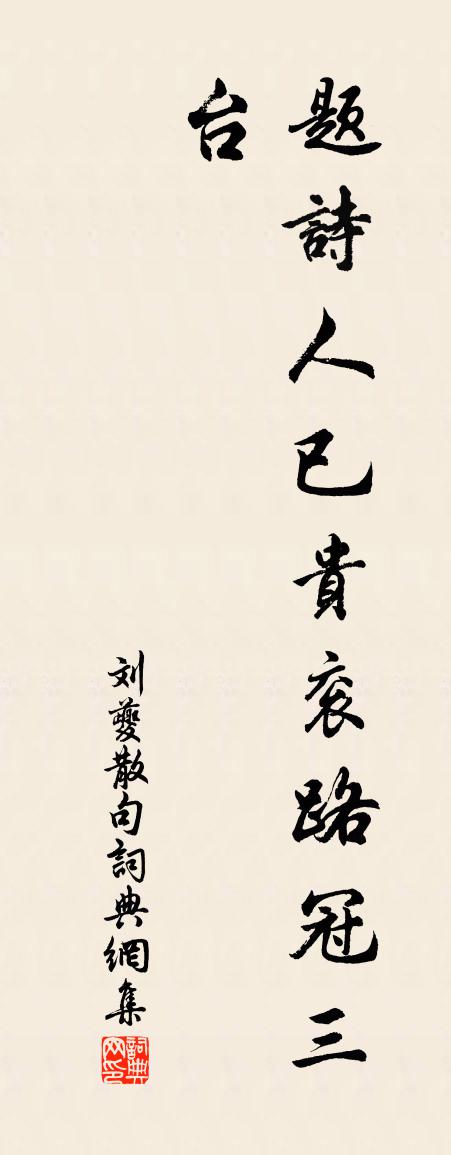 题詩人已貴衮路冠三
台
刘夔散句詞典網集
詞典网印